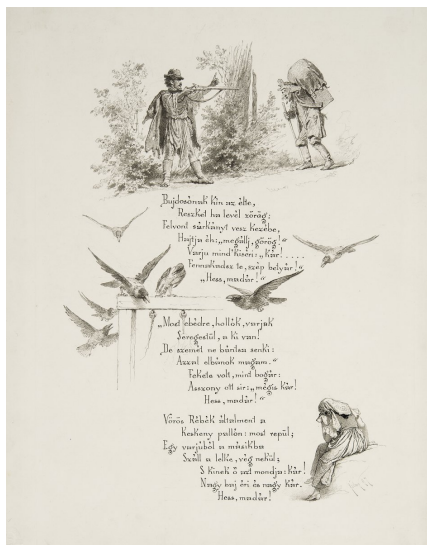 Bujdosónak kín az élte,
Reszket ha levél zörög;
Felvont sárkányt vesz kezébe,
Hajtja éh: „megállj, görög!“
Varju mind' kiséri: „kár!....
Fennakadsz te, szép betyár!“
„Hess, madár!“
„Most ebédre, hollók, varjak
Seregestül, a ki van!
De szemét ne bántsa senki:
Azzal elbánok magam.“
Fekete volt, mint bogár:
Asszony ott sir: „mégis kár!
Hess, madár!“
Vörös Rébék általment a
Keskeny pallón: most repül;
Egy varjúból a másikba
Száll a lelke, vég nekül;
S kinek ő azt mondja: kár!
Nagy baj éri és nagy kár.
Hess, madár!